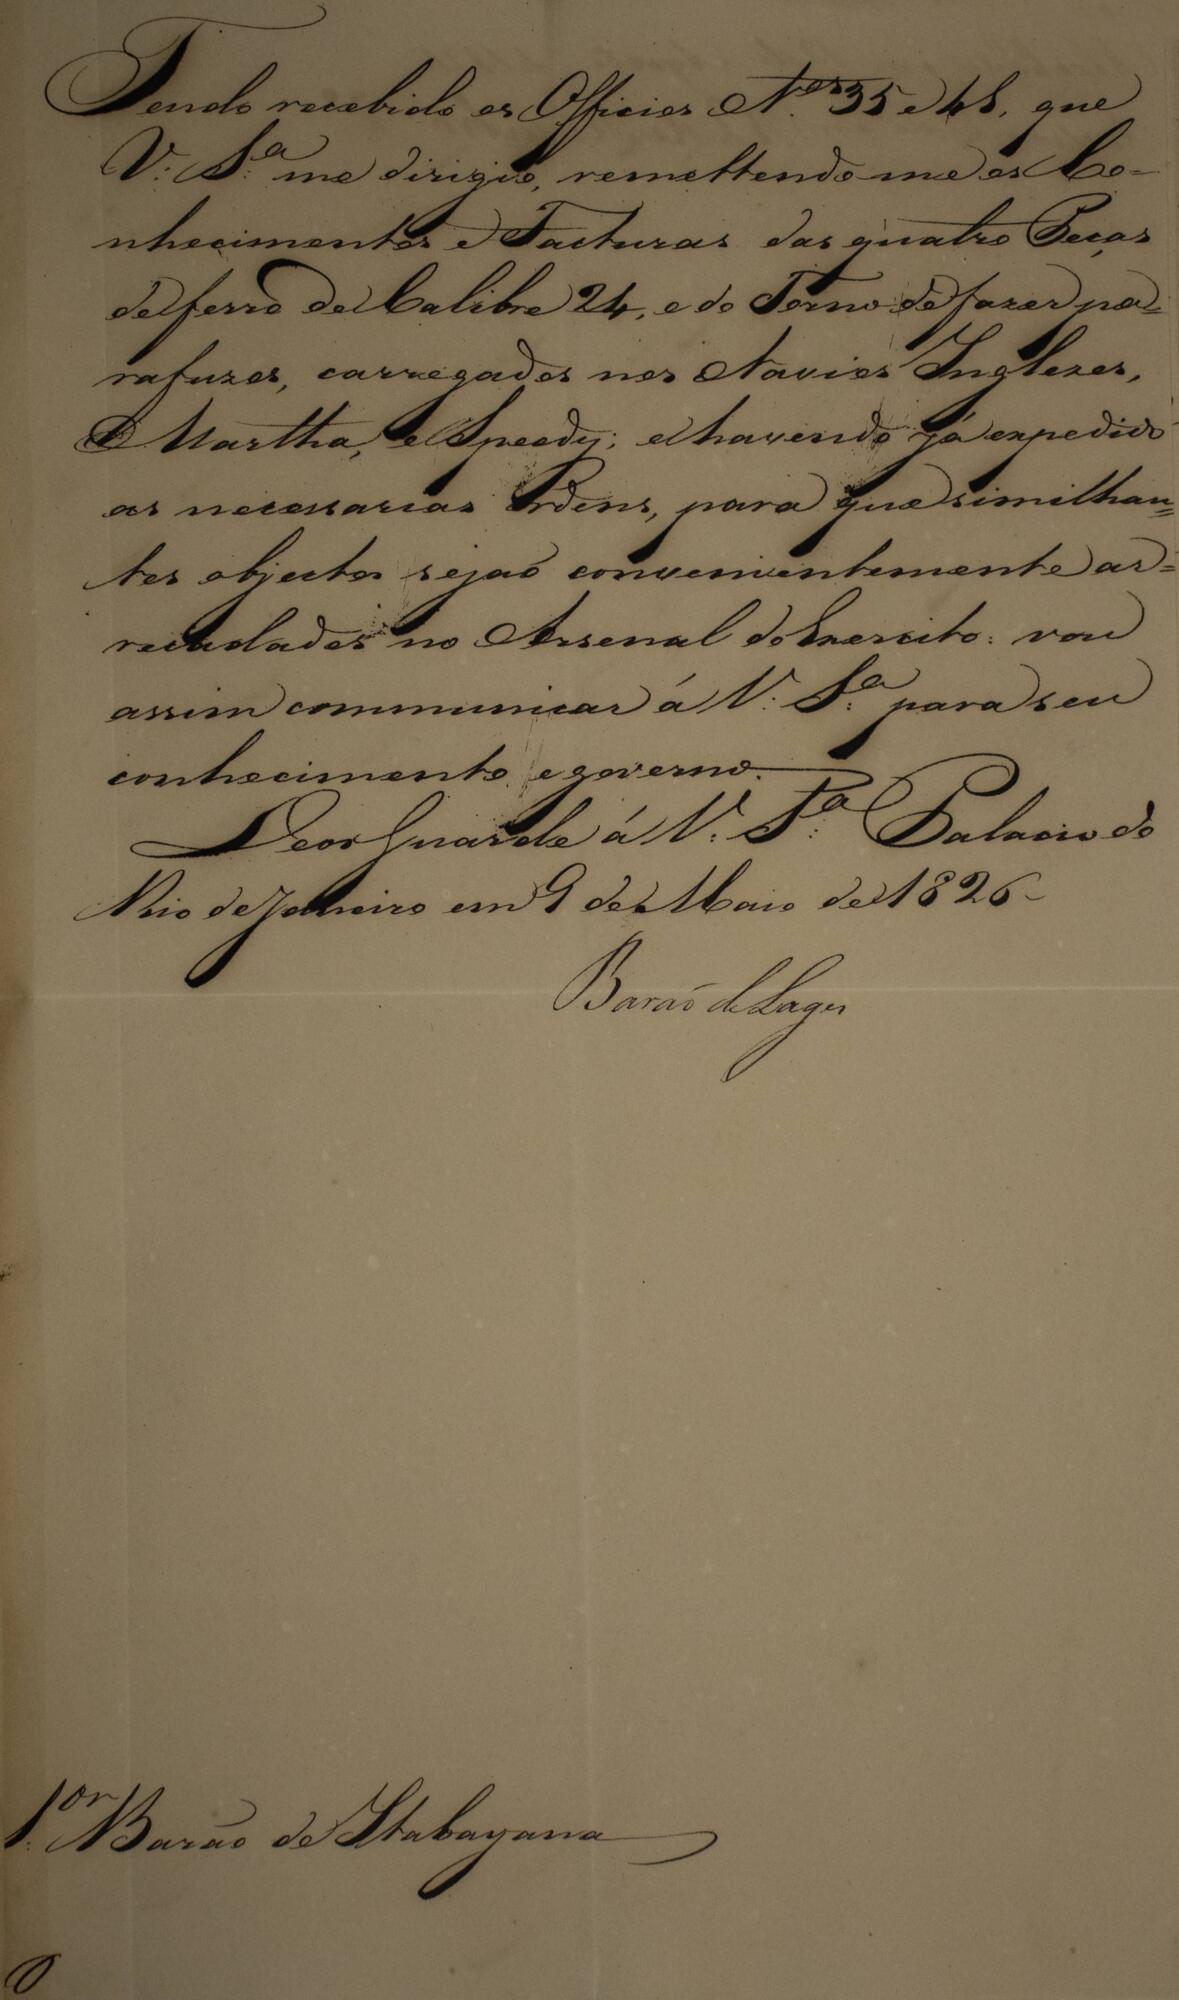 Tendo recebido os Officios N.os 35 e 48, que
V. S.a me dirigio, remettendo-me os Co-
nhecimentos e Facturas das quatro Peças
de ferro de Calibre 24, e do Torno de fazer pa-
rafuzos, carregados nos Navios Inglezes,
Martha, e Speedy; e havendo já expedido
as necessarias Ordens, para que similhan-
tes objectos sejaõ convenientemente ar-
recadados no Arsenal do Exercito: vou
assim communicar á V. S.a para seu
conhecimento e governo.
Deos Guarde á V. S.a Palacio do
Rio de Janeiro em 9 de Maio de 1826
Baraõ de Lages
S.or Barão de Itabayana